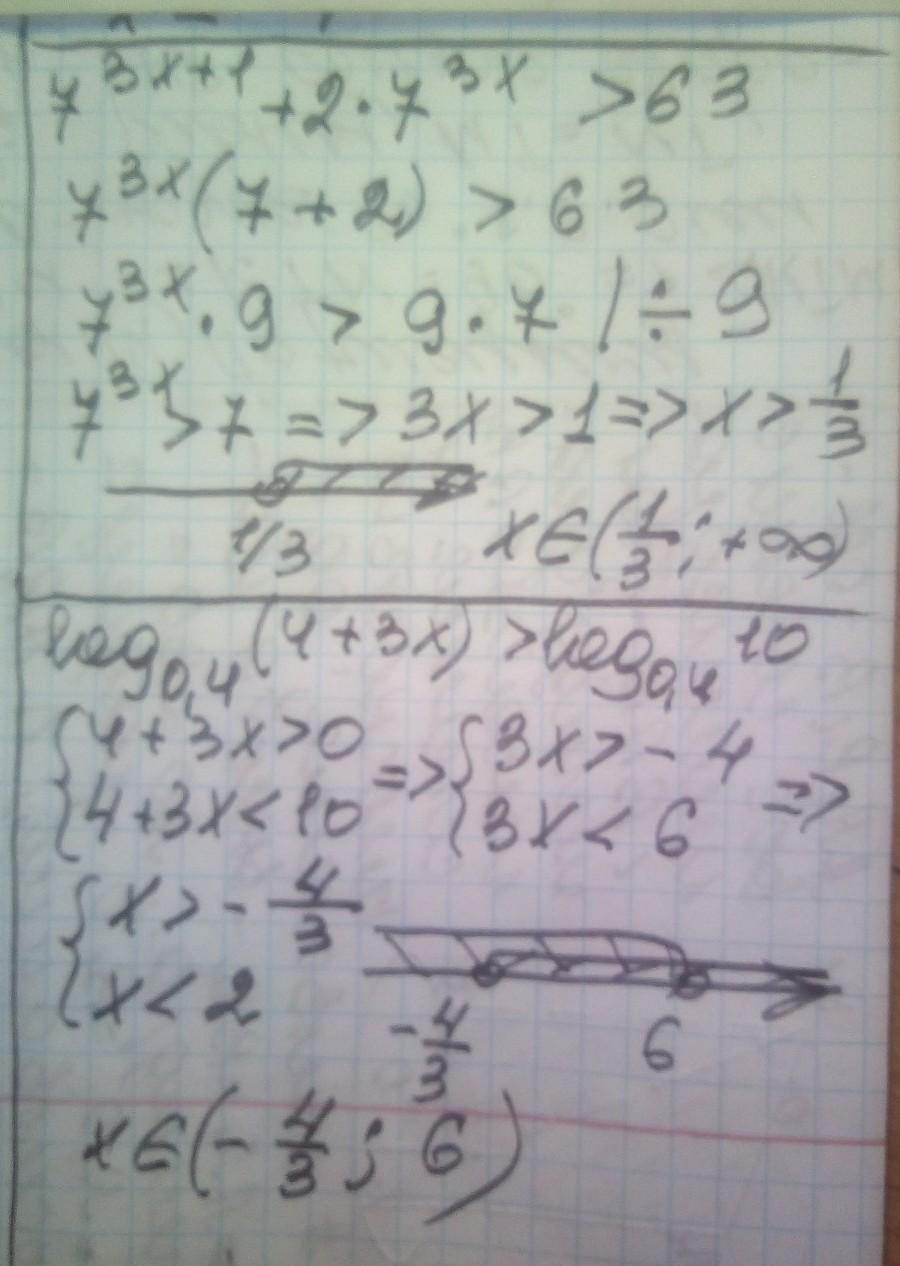 7^{3x+1} + 2·7^{3x} > 63
7^{3x}(7+2) > 63
7^{3x}·9 > 9·7 | ÷ 9
7^{3x} > 7 => 3x > 1 => x > 1/3
1/3 x ∈ (1/3; +∞)
log_{0,4}(4+3x) > log_{0,4} 10
{4+3x>0 => {3x > -4 =>
{4+3x<10 {3x < 6
{x > -4/3
{x < 2
-4/3 6
x ∈ (-4/3; 6)